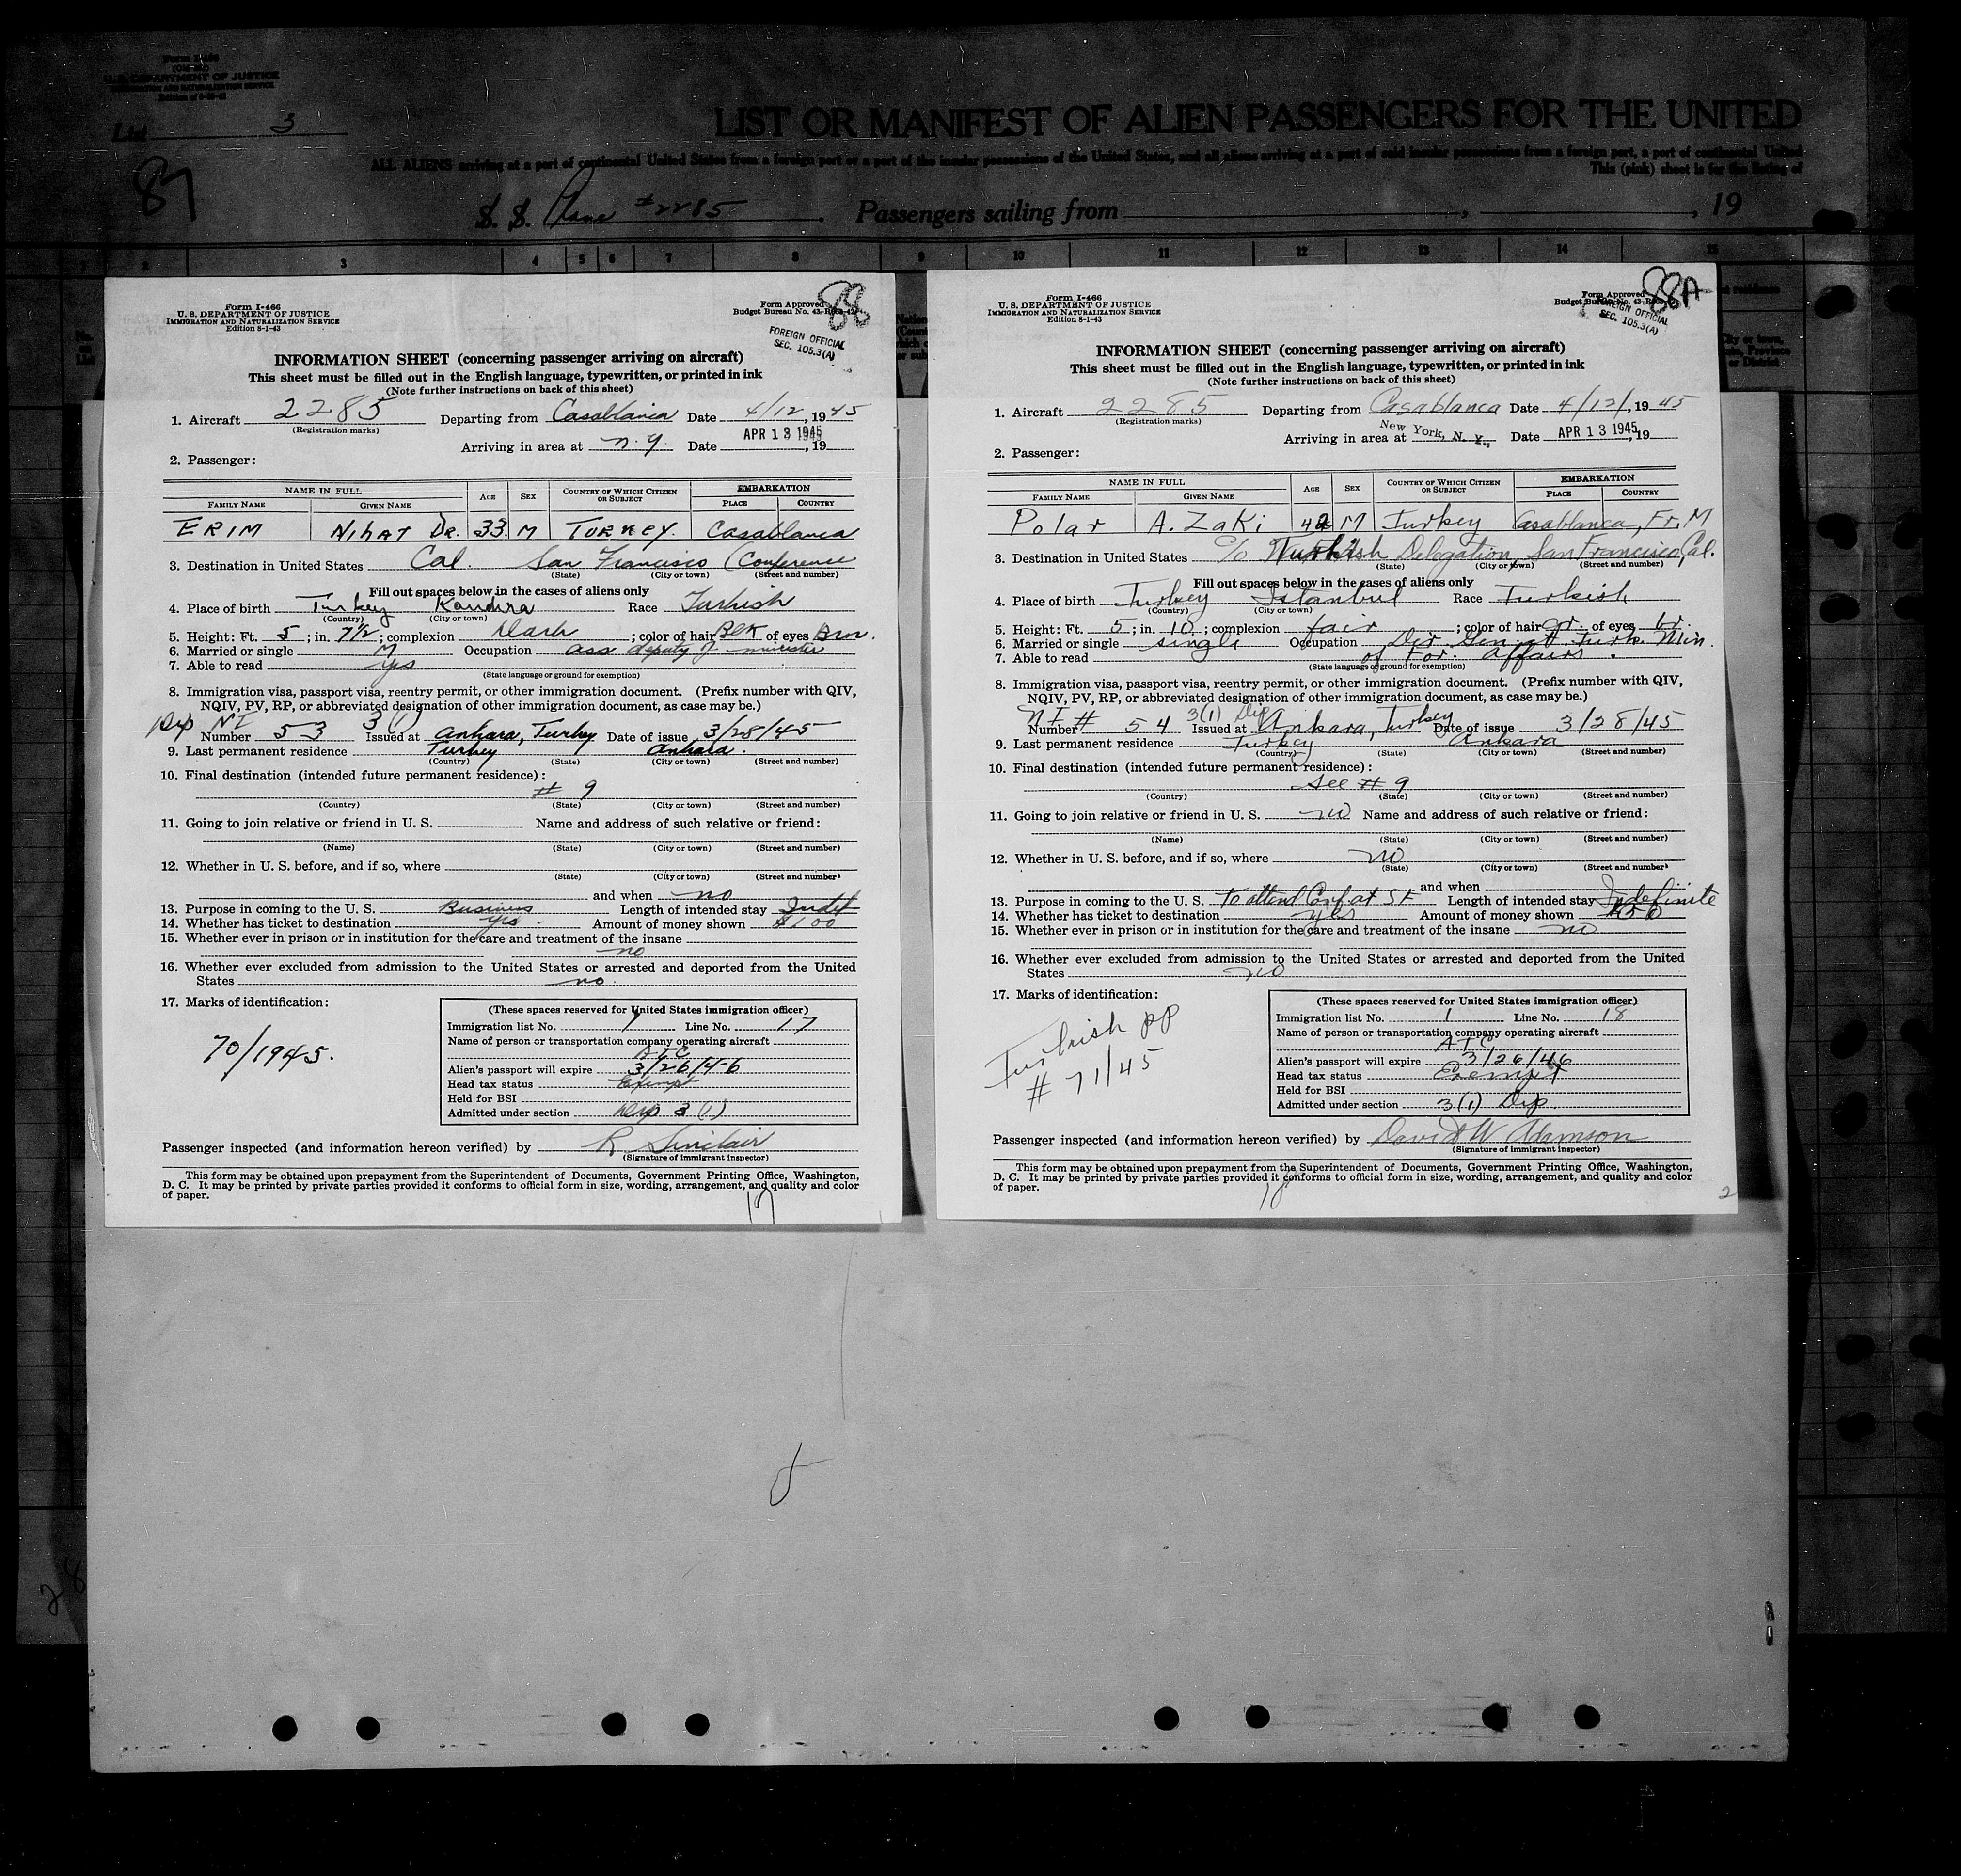 Form I-466
U. S. DEPARTMENT OF JUSTICE
List 3
LIST OR MANIFEST OF ALIEN PASSENGERS FOR THE UNITED
ALL ALIENS arriving at a port of continental United States from a foreign port or a port of the insular possessions of the United States, and all aliens arriving at a port of said insular possessions from a foreign port, a port of continental United
This (pink) sheet is for the listing of
87
S. S. Plane #2285 . Passengers sailing from , , 19
1 2 3 4 5 6 7 8 9 10 11 12 13 14 15
Form I-466
U. S. DEPARTMENT OF JUSTICE
IMMIGRATION AND NATURALIZATION SERVICE
Edition 8-1-43
Form Approved
Budget Bureau No. 43-
88
FOREIGN OFFICIAL
SEC. 105.3(A)
INFORMATION SHEET (concerning passenger arriving on aircraft)
This sheet must be filled out in the English language, typewritten, or printed in ink
(Note further instructions on back of this sheet)
1. Aircraft 2285 Departing from Casablanca Date 4/12, 1945
(Registration marks)
Arriving in area at N.Y. Date APR 13 1945, 19
2. Passenger:
NAME IN FULL AGE SEX COUNTRY OF WHICH CITIZEN OR SUBJECT EMBARKATION
FAMILY NAME GIVEN NAME PLACE COUNTRY
ERIM NIHAT DR. 33 M TURKEY. Casablanca
3. Destination in United States Cal. San Francisco (Conference
(State) (City or town) (Street and number)
Fill out spaces below in the cases of aliens only
4. Place of birth Turkey Kandira Race Turkish
(Country) (City or town)
5. Height: Ft. 5; in. 7 1/2; complexion Dark; color of hair BLK of eyes Brn.
6. Married or single M Occupation ass deputy of minister
7. Able to read yes
(State language or ground for exemption)
8. Immigration visa, passport visa, reentry permit, or other immigration document. (Prefix number with QIV,
NQIV, PV, RP, or abbreviated designation of other immigration document, as case may be.)
Dip NI 3(1)
Number 53 Issued at Ankara, Turkey Date of issue 3/28/45
9. Last permanent residence Turkey Ankara.
(Country) (State) (City or town) (Street and number)
10. Final destination (intended future permanent residence):
# 9
(Country) (State) (City or town) (Street and number)
11. Going to join relative or friend in U. S. Name and address of such relative or friend:
(Name) (State) (City or town) (Street and number)
12. Whether in U. S. before, and if so, where
(State) (City or town) (Street and number)
and when no
13. Purpose in coming to the U. S. Business Length of intended stay Indef
14. Whether has ticket to destination yes. Amount of money shown $100
15. Whether ever in prison or in institution for the care and treatment of the insane
no
16. Whether ever excluded from admission to the United States or arrested and deported from the United
States no.
17. Marks of identification:
70/1945.
(These spaces reserved for United States immigration officer)
Immigration list No. 1 Line No. 17
Name of person or transportation company operating aircraft
ATC
Alien's passport will expire 3/26/46
Head tax status Exempt
Held for BSI
Admitted under section Dip 3(1)
Passenger inspected (and information hereon verified) by R Sinclair
(Signature of immigrant inspector)
This form may be obtained upon prepayment from the Superintendent of Documents, Government Printing Office, Washington,
D. C. It may be printed by private parties provided it conforms to official form in size, wording, arrangement, and quality and color
of paper.
17
Form I-466
U. S. DEPARTMENT OF JUSTICE
IMMIGRATION AND NATURALIZATION SERVICE
Edition 8-1-43
Form Approved
Budget Bureau No. 43-
88A
FOREIGN OFFICIAL
SEC. 105.3(A)
INFORMATION SHEET (concerning passenger arriving on aircraft)
This sheet must be filled out in the English language, typewritten, or printed in ink
(Note further instructions on back of this sheet)
1. Aircraft 2285 Departing from Casablanca Date 4/12/, 1945
(Registration marks)
Arriving in area at New York, N. Y., Date APR 13 1945, 19
2. Passenger:
NAME IN FULL AGE SEX COUNTRY OF WHICH CITIZEN OR SUBJECT EMBARKATION
FAMILY NAME GIVEN NAME PLACE COUNTRY
Polar A. Zaki 42 M Turkey Casablanca, Fr. M
3. Destination in United States c/o Turkish Delegation, San Francisco, Cal.
(State) (City or town) (Street and number)
Fill out spaces below in the cases of aliens only
4. Place of birth Turkey Istanbul Race Turkish
(Country) (City or town)
5. Height: Ft. 5; in. 10; complexion fair; color of hair gr. of eyes br.
6. Married or single single Occupation Dir. Gen. at Turk. Min.
7. Able to read of For. Affairs.
(State language or ground for exemption)
8. Immigration visa, passport visa, reentry permit, or other immigration document. (Prefix number with QIV,
NQIV, PV, RP, or abbreviated designation of other immigration document, as case may be.)
NI # 3(1) Dip
Number 54 Issued at Ankara, Turkey Date of issue 3/28/45
9. Last permanent residence Turkey Ankara
(Country) (State) (City or town) (Street and number)
10. Final destination (intended future permanent residence):
See # 9
(Country) (State) (City or town) (Street and number)
11. Going to join relative or friend in U. S. no Name and address of such relative or friend:
(Name) (State) (City or town) (Street and number)
12. Whether in U. S. before, and if so, where no
(State) (City or town) (Street and number)
and when
13. Purpose in coming to the U. S. to attend Conf. at SF Length of intended stay Indefinite
14. Whether has ticket to destination yes Amount of money shown $50
15. Whether ever in prison or in institution for the care and treatment of the insane no
16. Whether ever excluded from admission to the United States or arrested and deported from the United
States no
17. Marks of identification:
Turkish pp
# 71/45
(These spaces reserved for United States immigration officer)
Immigration list No. 1 Line No. 18
Name of person or transportation company operating aircraft
ATC
Alien's passport will expire 3/26/46
Head tax status Exempt
Held for BSI
Admitted under section 3(1) Dip.
Passenger inspected (and information hereon verified) by David W Adamson
(Signature of immigrant inspector)
This form may be obtained upon prepayment from the Superintendent of Documents, Government Printing Office, Washington,
D. C. It may be printed by private parties provided it conforms to official form in size, wording, arrangement, and quality and color
of paper.
18
2
28